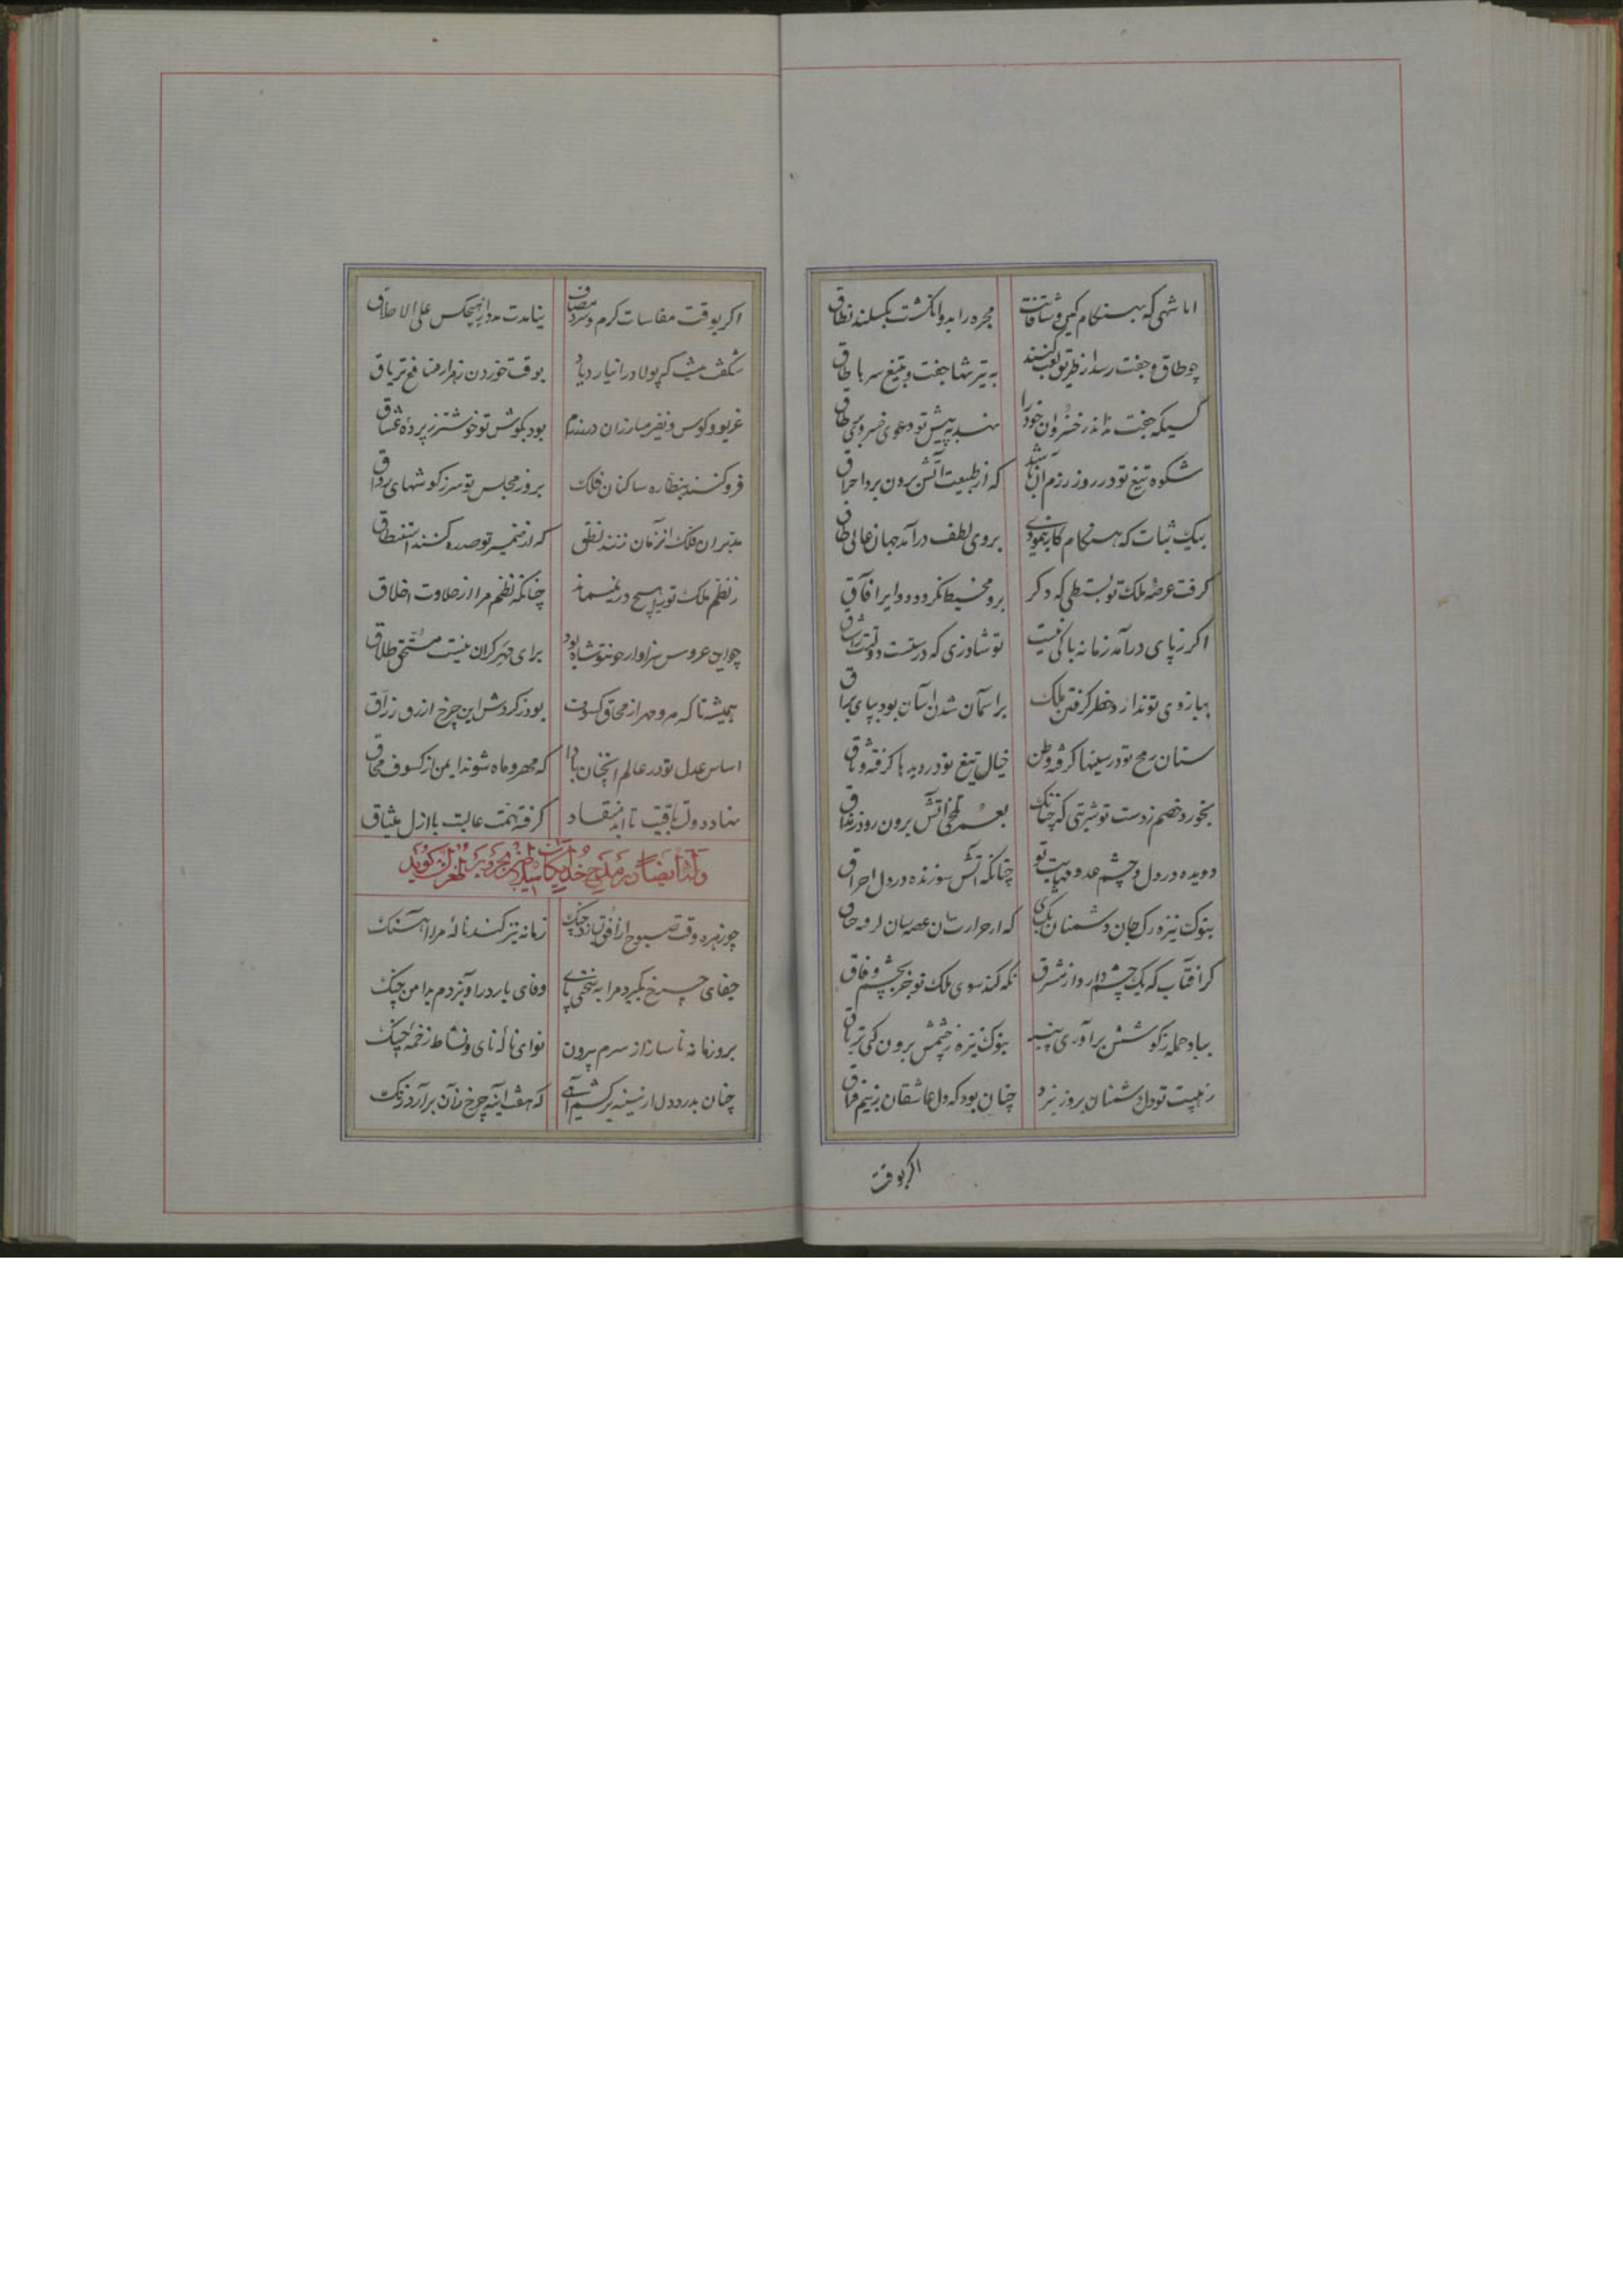 اما شهی که بهنگام کمین وشاقانت مجره را بدو انگشت بکسلند نطاق
چو طاق و جفت رسد از طریق لعب کنند به تیر تنها جفت و بتیغ سرها طاق
کسیکه جفت نداند ز خسروان خود را نهد به پیش تو دعوی خسروی بر طاق
شکوه تیغ تو در روز رزم آن باشد که از طبیعت آتش برون برد احراق
بیک ثبات که هنگام کار بنمودی بروی لطف درآمد جهان عالی طاق
کرفت عرصه ملک تو بسطتی که دکر برو محیط نکردد دوایر آفاق
اکر ز پای درآمد زمانه باکی نیست تو شادزی که درستست دولتت را ساق
ببازوی تو ندارد خطر کرفتن ملک بر آسمان شدن آسان بود بپای براق
سنان رمح تو در سینها کرفته وطن خیال تیغ تو در دیدها کرفته وثاق
بخورد خصم ز دست تو شربتی که چنانک بعمر تلخی آتش برون رود ز مذاق
دویده در دل و چشم عدو مهابت تو چنانکه آتش سوزنده در دل احراق
بنوک نیزه رک جان دشمنان بکشای که از حرارتشان
کر آفتاب که یک چشم دارد از مشرق نکه کند سوی ملک تو جز بچشم وفاق
بباد حمله ز کوشش برآوری پنبه بنوک نیزه ز چشمش برون کنی
ز هیبت تو دل دشمنان بروز نبرد چنان بود که دل عاشقان ز بیم فراق
اکر بوقت
اکر بوقت مقاسات کرم و سرد مصاف نیامدت مدد از هیچکس علی الاطلاق
شکفت نیست که پولاد را نیارد یاد بوقت خوردن زهر از منافع تریاق
غریو کوس و نفیر مبارزان در رزم بود بکوش تو خوشتر ز پرده عشاق
فرو کنند بنظاره ساکنان فلک بروز مجلس تو سر ز کوشهای رواق
مدبران فلک آنزمان زنند نطق که از ضمیر تو صد ره کنند استنطاق
ز نظم ملک تو را هیچ در نمیماند چنانکه نظم مرا از حلاوت اخلاق
چو این عروس سزاوار چون تو شاه بود برای مهر کران نیست مستحق طلاق
همیشه تا که مه و مهر از محاق و کسوف بود ز کردش این چرخ ازرق زراق
اساس عدل تو در عالم آنچنان بادا که مهر و ماه شوند ایمن از کسوف و محاق
نهاد دولت باقیت تا ابد منقاد کرفته همت عالیت با ازل میثاق
وله ایضا در مدح خدایکان گوید
چو زهره وقت صبوح از افق بسازد چنک زمانه تیز کند ناله مرا آهنک
جفای چرخ بگیرد مرا به سختی پای وفای یار درآویزدم بدامن چنک
برد زمانه ناساز از سرم بیرون نوای ناله نای و نشاط زخمه چنک
چنان بدرد دل از سینه برکشم آهی که هفت آینه چرخ از آن برآرد زنک